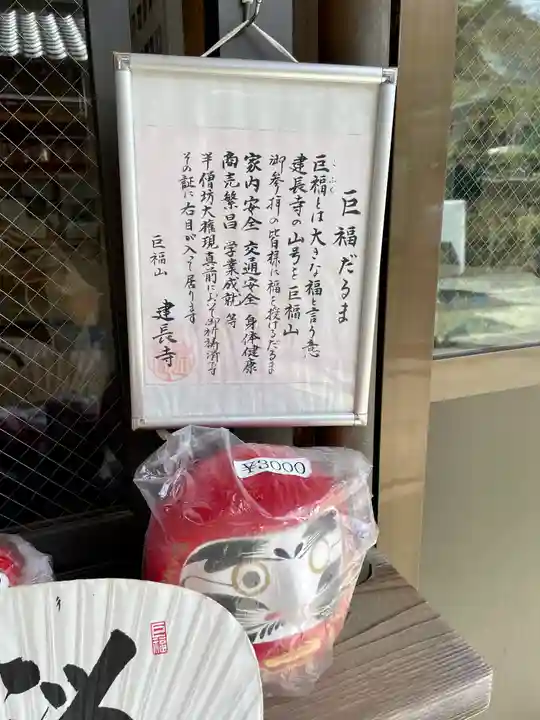 巨福だるま
こふく
巨福とは大きな福と言う意
建長寺の山号を巨福山
御参拝の皆様に福を授けるだるま
家内安全 交通安全 身体健康
商売繁昌 学業成就 等
半僧坊大権現真前において御祈祷済です
その証に右目が入って居ります
巨福山 建長寺
¥3000
巨福